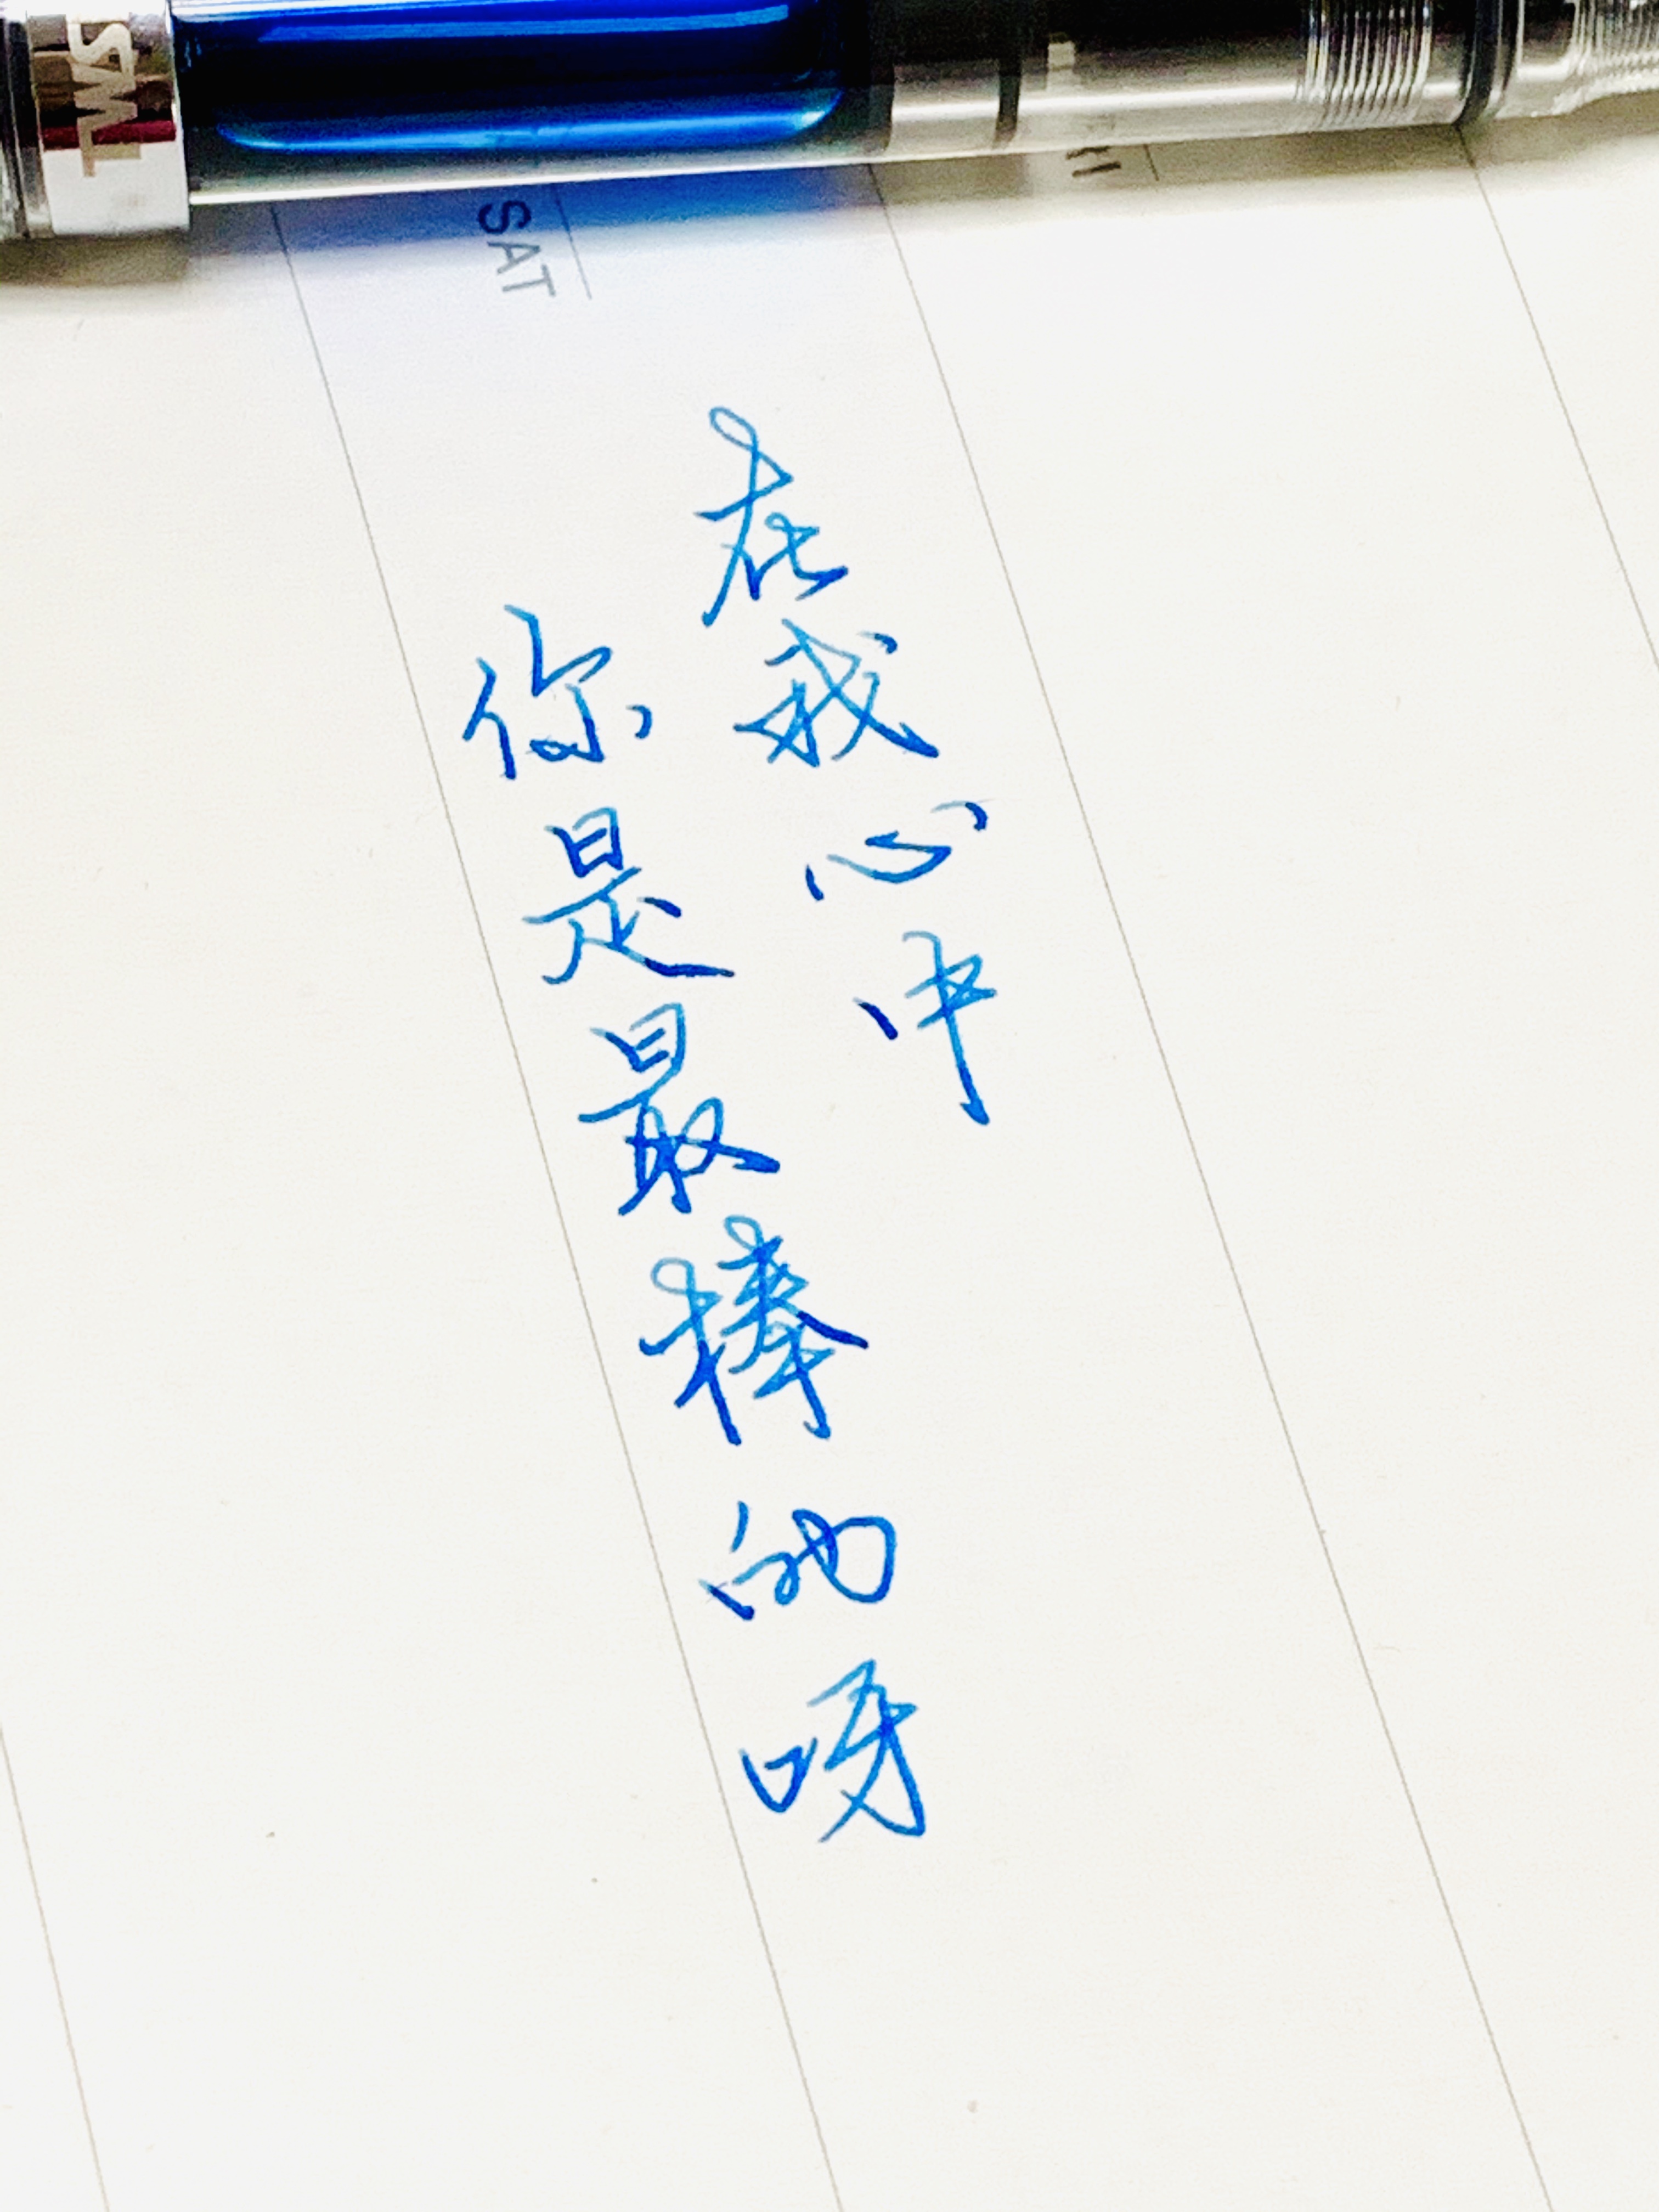 在我心中
你是最棒的呀
SAT